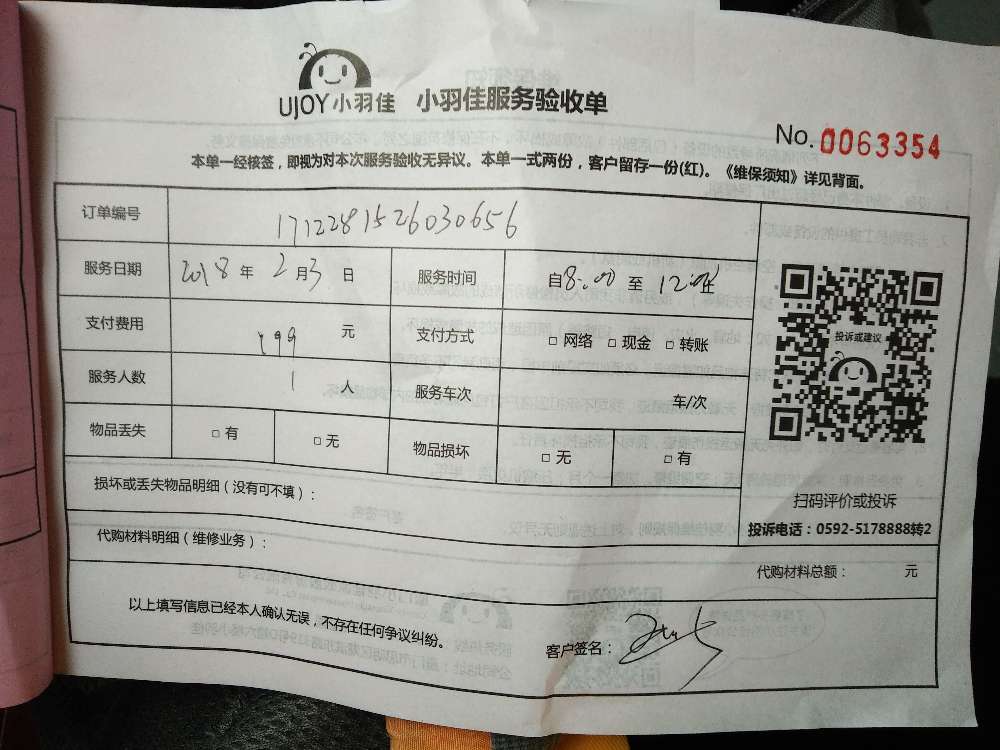 UJOY小羽佳 小羽佳服务验收单
No. 0063354
本单一经核签，即视为对本次服务验收无异议。本单一式两份，客户留存一份(红)。《维保须知》详见背面。
订单编号 1712281526030656
服务日期 2018 年 2 月 3 日 服务时间 自8:00 至 12:00
支付费用 199 元 支付方式 □ 网络 □ 现金 □ 转账
服务人数 1 人 服务车次 车/次
物品丢失 □ 有 □ 无 物品损坏 □ 无 □ 有
投诉或建议
扫码评价或投诉
投诉电话：0592-5178888转2
损坏或丢失物品明细（没有可不填）：
代购材料明细（维修业务）：
代购材料总额： 元
以上填写信息已经本人确认无误，不存在任何争议纠纷。
客户签名：